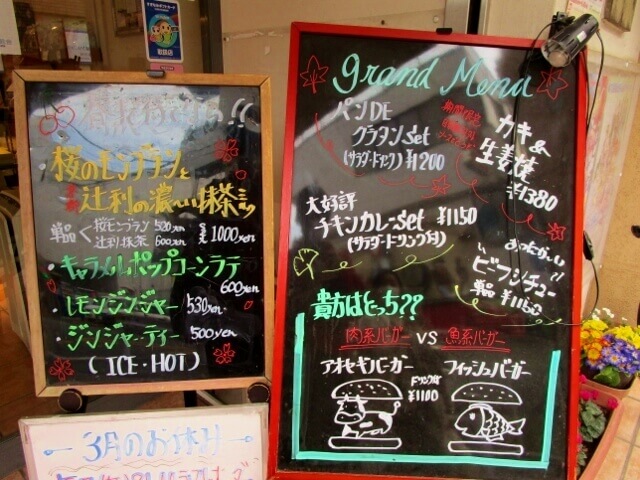 桜のモンブランと
京都
辻利の濃〜い抹茶
単品
桜モンブラン 520yen
辻利抹茶 600yen
1000yen
・キャラメルポップコーンラテ
600yen
・レモンジンジャー 530yen
・ジンジャーティー 500yen
(ICE・HOT)
3月のお休み
Grand Menu
パンDE
グラタンSet
(サラダ・ドリンク付) ¥1200
期間限定
カキ&
生姜焼
¥1380
大好評
チキンカレーSet ¥1150
(サラダ・ドリンク付)
あったか〜い
ビーフシチュー
単品 ¥1150
貴方はどっち??
肉系バーガー VS 魚系バーガー
アオセギバーガー
ドリンク付
¥1100
フィッシュバーガー